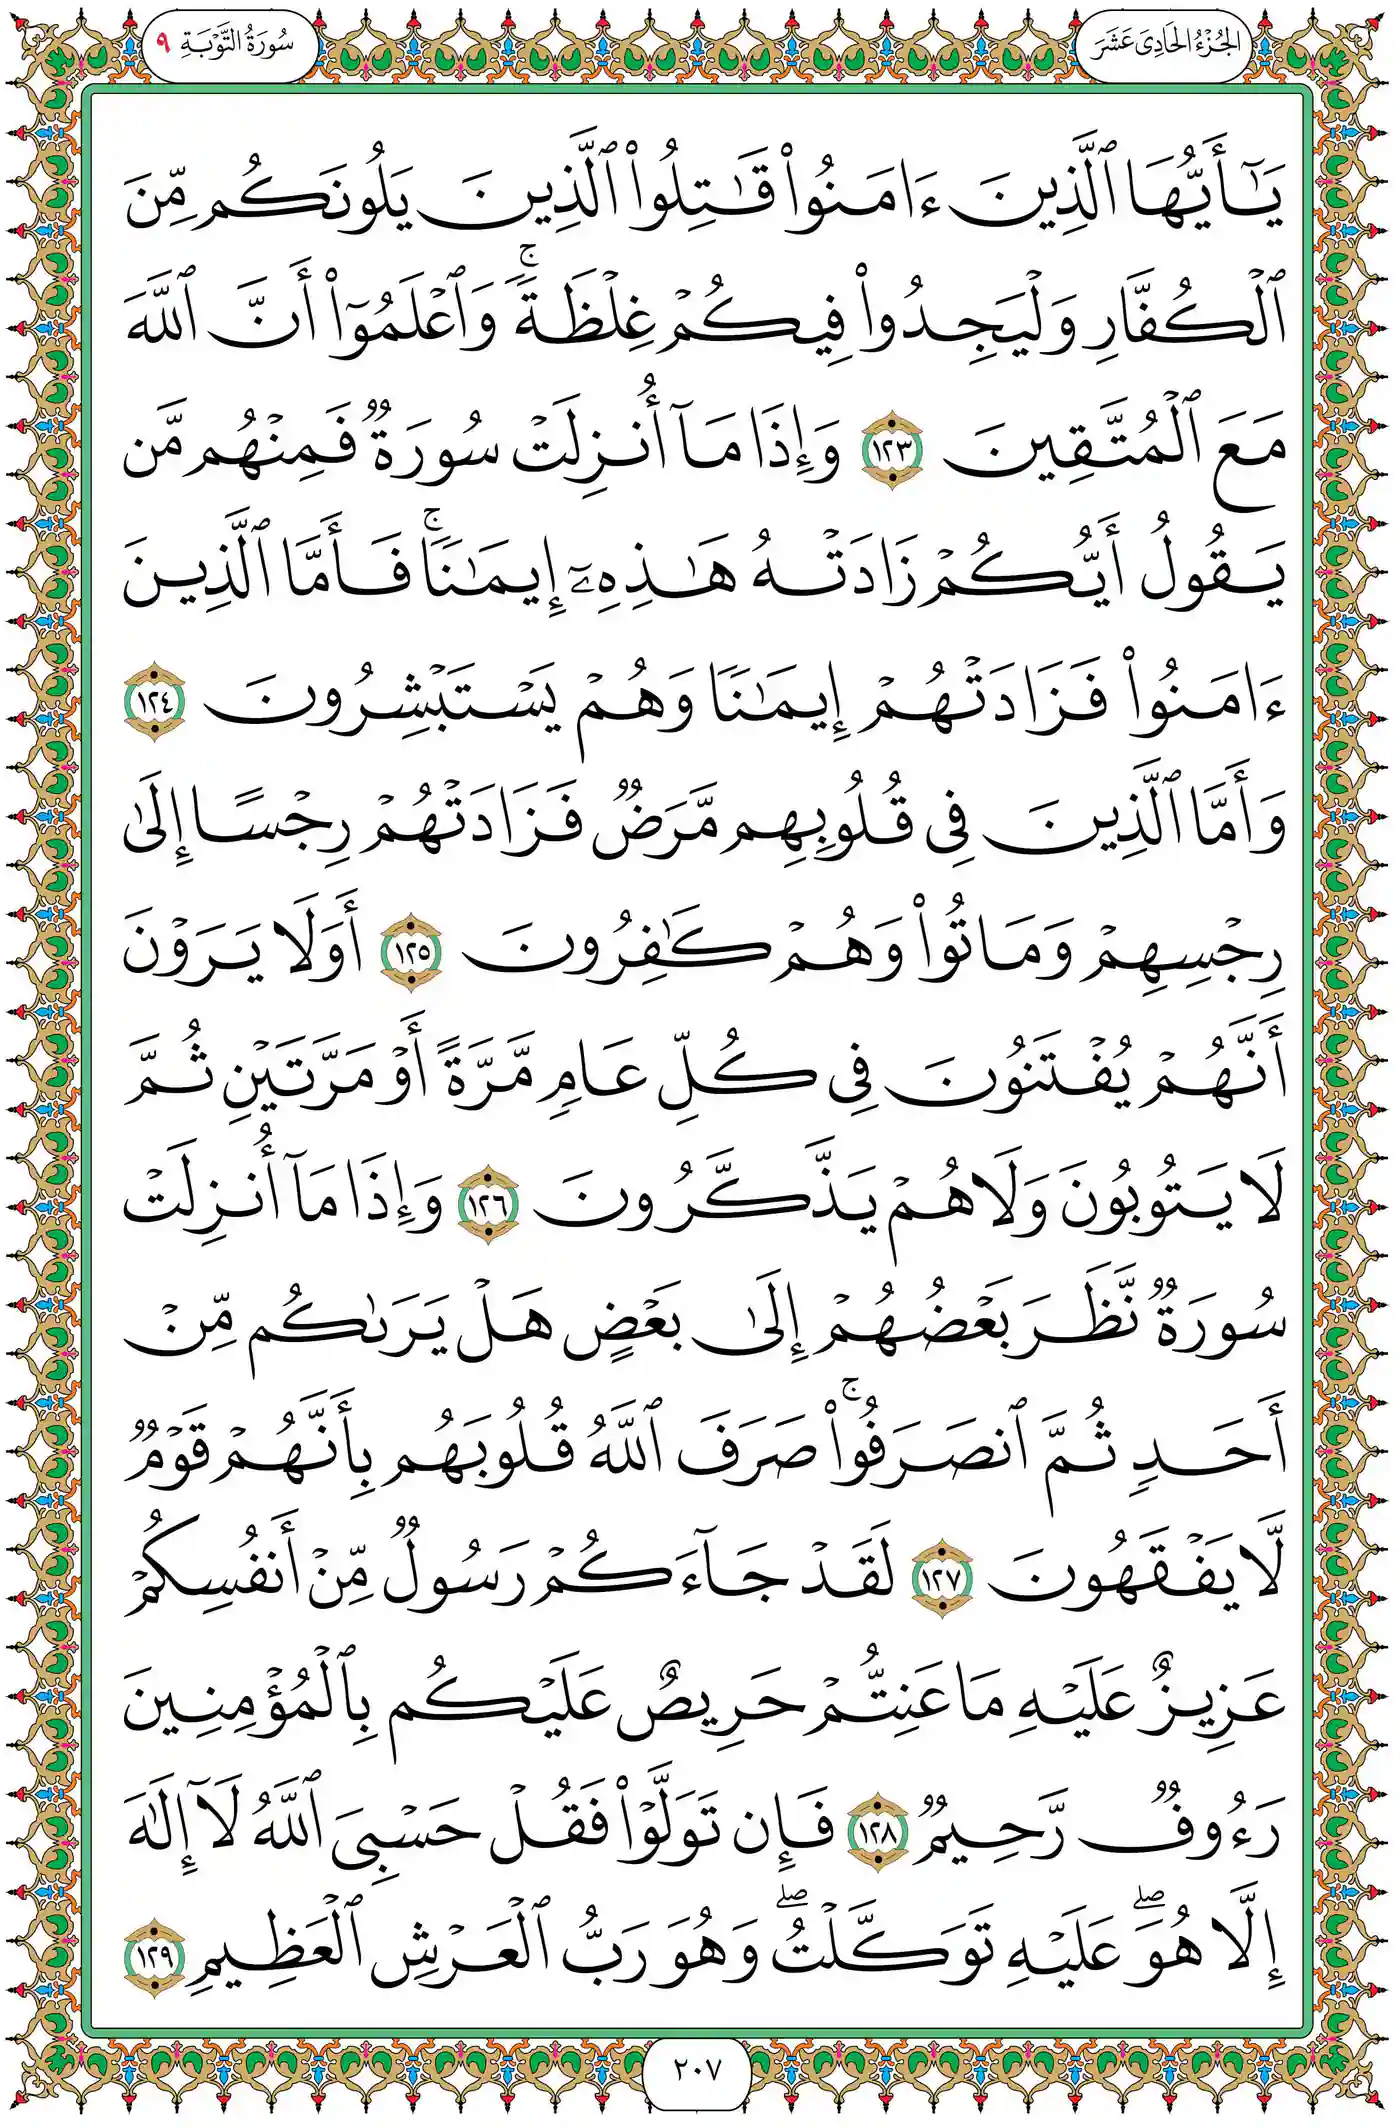 الجُزْءُ الحَادِىَ عَشَرَ
سُورَةُ التَّوْبَةِ ٩
يَـٰٓأَيُّهَا ٱلَّذِينَ ءَامَنُوا۟ قَـٰتِلُوا۟ ٱلَّذِينَ يَلُونَكُم مِّنَ
ٱلْكُفَّارِ وَلْيَجِدُوا۟ فِيكُمْ غِلْظَةً ۚ وَٱعْلَمُوٓا۟ أَنَّ ٱللَّهَ
مَعَ ٱلْمُتَّقِينَ ١٢٣ وَإِذَا مَآ أُنزِلَتْ سُورَةٌ فَمِنْهُم مَّن
يَقُولُ أَيُّكُمْ زَادَتْهُ هَـٰذِهِۦٓ إِيمَـٰنًا ۚ فَأَمَّا ٱلَّذِينَ
ءَامَنُوا۟ فَزَادَتْهُمْ إِيمَـٰنًا وَهُمْ يَسْتَبْشِرُونَ ١٢٤
وَأَمَّا ٱلَّذِينَ فِى قُلُوبِهِم مَّرَضٌ فَزَادَتْهُمْ رِجْسًا إِلَىٰ
رِجْسِهِمْ وَمَاتُوا۟ وَهُمْ كَـٰفِرُونَ ١٢٥ أَوَلَا يَرَوْنَ
أَنَّهُمْ يُفْتَنُونَ فِى كُلِّ عَامٍ مَّرَّةً أَوْ مَرَّتَيْنِ ثُمَّ
لَا يَتُوبُونَ وَلَا هُمْ يَذَّكَّرُونَ ١٢٦ وَإِذَا مَآ أُنزِلَتْ
سُورَةٌ نَّظَرَ بَعْضُهُمْ إِلَىٰ بَعْضٍ هَلْ يَرَىٰكُم مِّنْ
أَحَدٍ ثُمَّ ٱنصَرَفُوا۟ ۚ صَرَفَ ٱللَّهُ قُلُوبَهُم بِأَنَّهُمْ قَوْمٌ
لَّا يَفْقَهُونَ ١٢٧ لَقَدْ جَآءَكُمْ رَسُولٌ مِّنْ أَنفُسِكُمْ
عَزِيزٌ عَلَيْهِ مَا عَنِتُّمْ حَرِيصٌ عَلَيْكُم بِٱلْمُؤْمِنِينَ
رَءُوفٌ رَّحِيمٌ ١٢٨ فَإِن تَوَلَّوْا۟ فَقُلْ حَسْبِىَ ٱللَّهُ لَآ إِلَـٰهَ
إِلَّا هُوَ ۖ عَلَيْهِ تَوَكَّلْتُ ۖ وَهُوَ رَبُّ ٱلْعَرْشِ ٱلْعَظِيمِ ١٢٩
٢٠٧